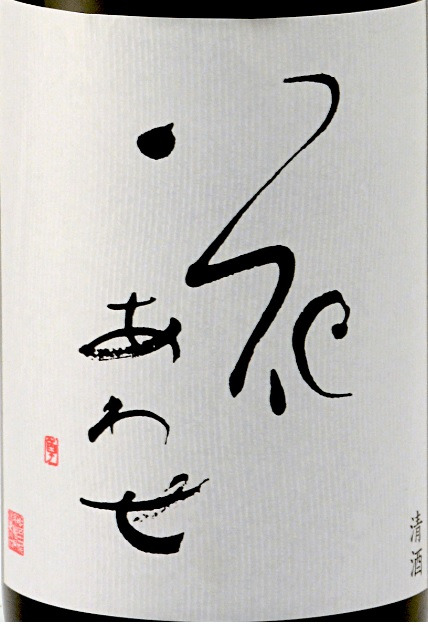 花
あわせ
清酒